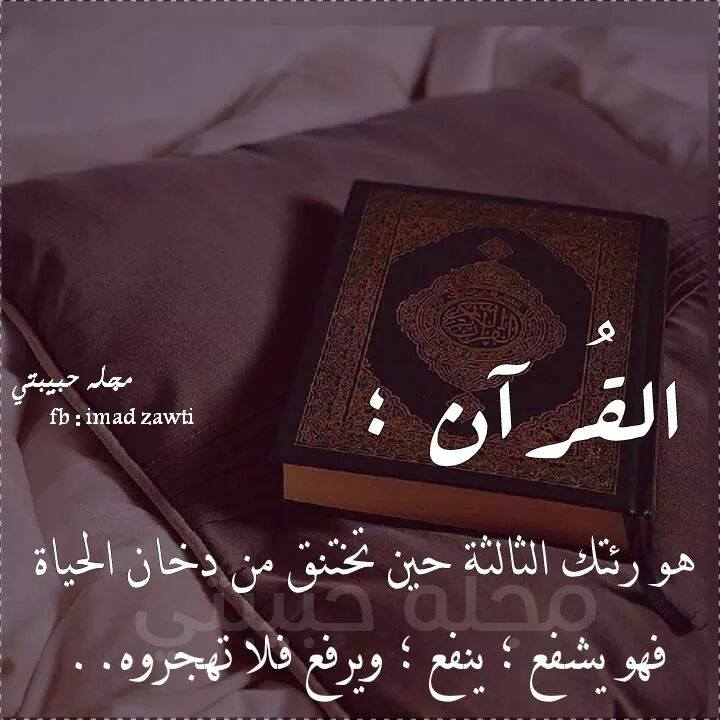 القُرآن :
مجله حبيبتي
fb : imad zawti
هو رئتك الثالثة حين تختنق من دخان الحياة
مجله حبيبتي
فهو يشفع ؛ ينفع ؛ ويرفع فلا تهجروه. .